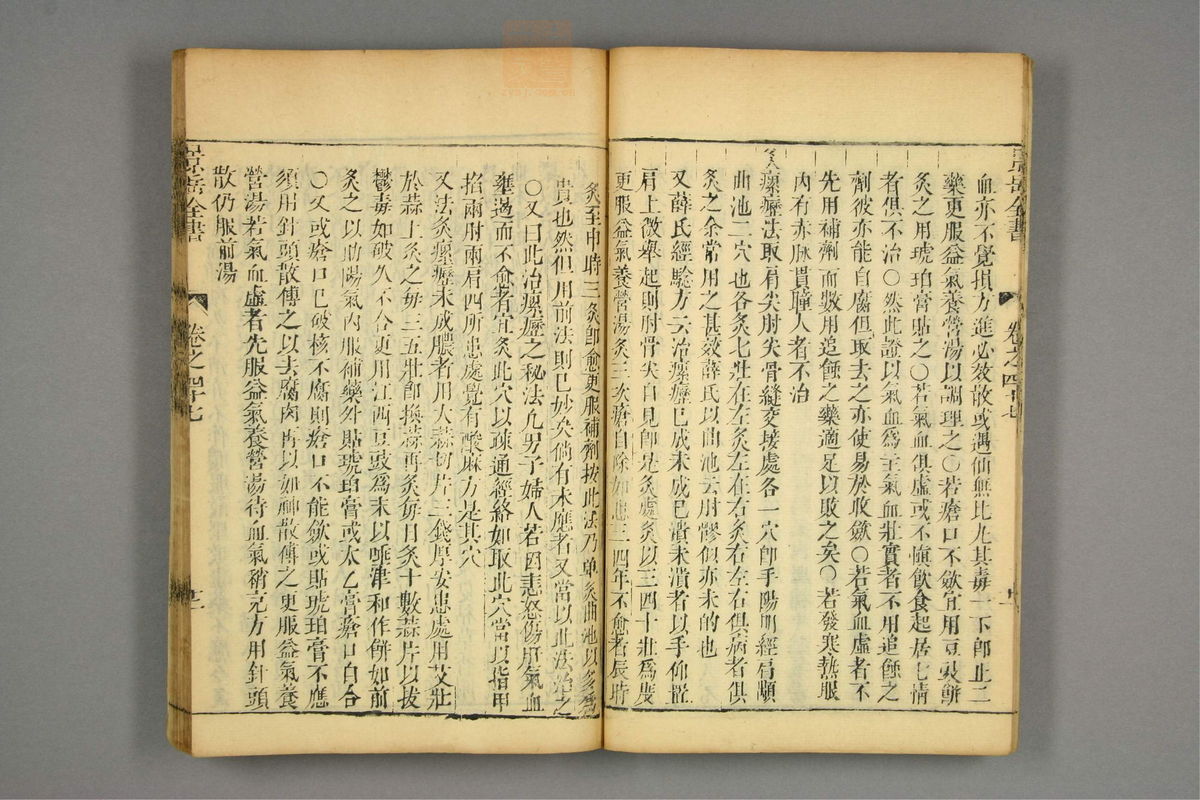 景岳全書
卷之四十七
血亦不覺損方進必效散或遇仙無比丸其毒一下即止二
藥更服益氣養營湯以調理之○若瘡口不斂宜用豆豉餅
灸之用琥珀膏貼之○若氣血俱虛或不愼飲食起居七情
者俱不治○然此證以氣血爲主氣血壯實者不用追蝕之
劑彼亦能自腐但取去之亦使易於收斂○若氣血虛者不
先用補劑而數用追蝕之藥適足以敗之矣○若發寒熱眼
內有赤脉貫瞳人者不治
灸瘰癧法取肩尖肘尖骨縫交接處各一穴即手陽明經肩顒
曲池二穴也各灸七壯在左灸左在右灸右左右俱病者俱
灸之余常用之甚效薛氏以曲池云肘髎似亦未的也
又薛氏經驗方云治瘰癧已成未成已潰未潰者以手仰置
肩上微舉起則肘骨尖自見即是灸處灸以三四十壯爲度
更服益氣養營湯灸三次瘡自除如患三四年不愈者辰時
灸至申時三灸即愈更服補劑按此法乃單灸曲池以多爲
貴也然但用前法則已妙矣倘有未應者又當以此法治之
○又曰此治瘰癧之秘法凡男子婦人若因恚怒傷肝氣血
壅遏而不愈者宜灸此穴以疎通經絡如取此穴當以指甲
掐兩肘兩肩四所患處覺有酸麻方是其穴
又法灸瘰癧未成膿者用大蒜切片三錢厚安患處用艾壯
於蒜上灸之每三五壯即換蒜再灸每日灸十數蒜片以拔
鬱毒如破久不合更用江西豆豉爲末以唾津和作餅如前
灸之以助陽氣內服補藥外貼琥珀膏或太乙膏瘡口自合
○又或瘡口已破核不腐則瘡口不能斂或貼琥珀膏不應
須用針頭散傅之以去腐肉再以如神散傅之更服益氣養
營湯若氣血虛者先服益氣養營湯待血氣稍充方用針頭
散仍服前湯
景岳全書
卷之四十七